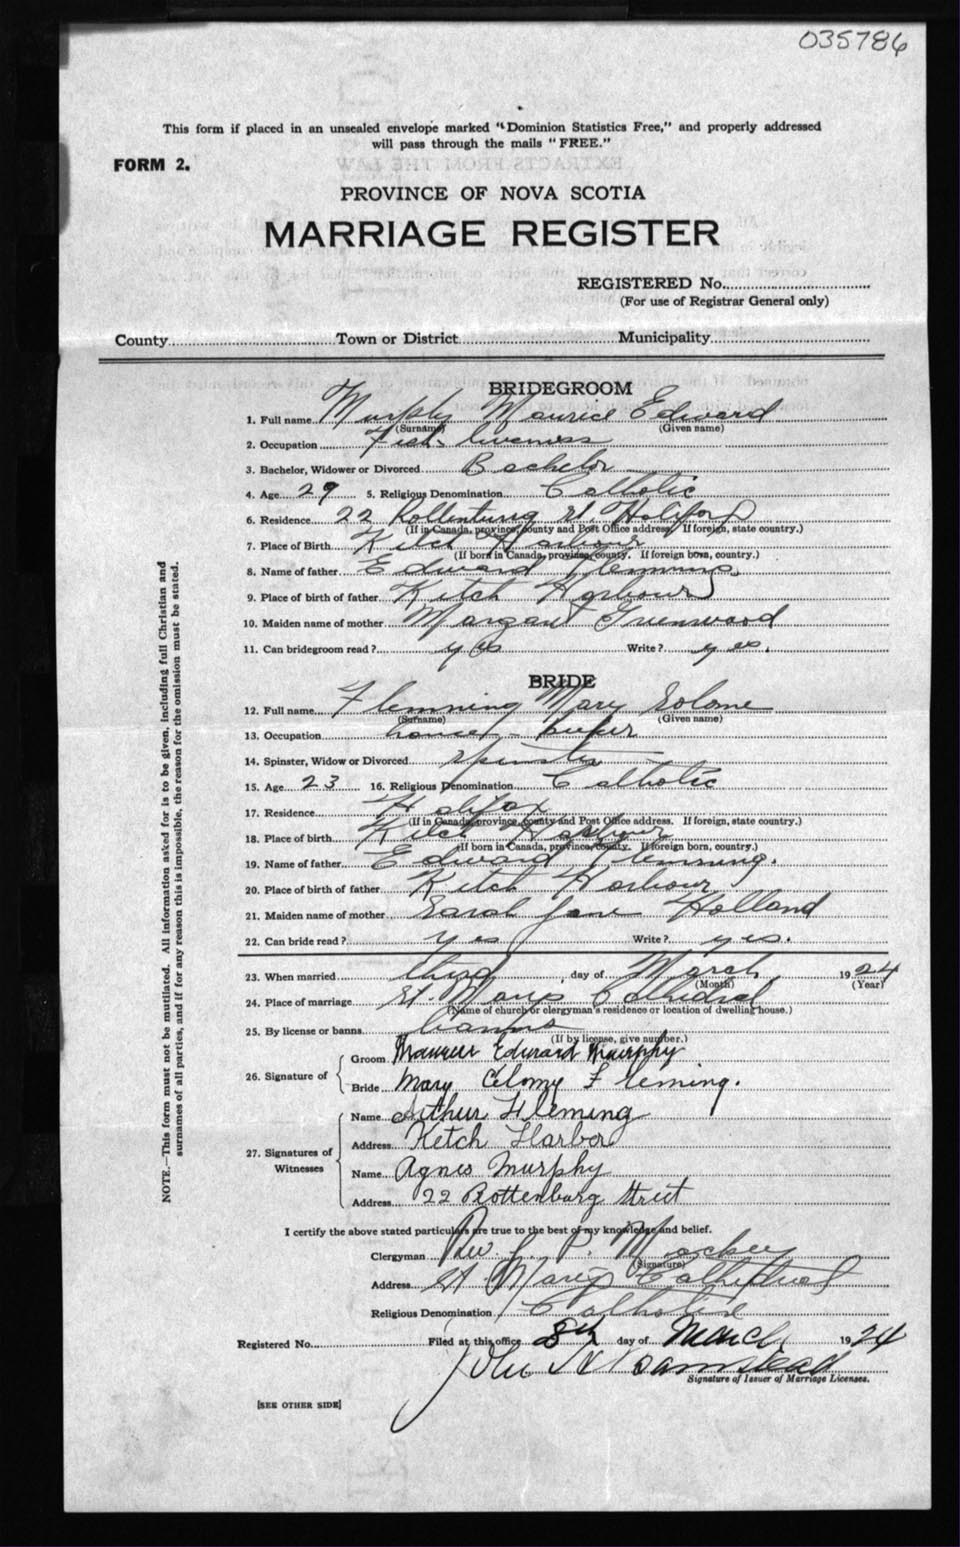 035786
This form if placed in an unsealed envelope marked "Dominion Statistics Free," and properly addressed
will pass through the mails "FREE."
FORM 2.
PROVINCE OF NOVA SCOTIA
MARRIAGE REGISTER
REGISTERED No.
(For use of Registrar General only)
County Town or District Municipality
BRIDEGROOM
1. Full name Murphy Maurice Edward
(Surname) (Given name)
2. Occupation Fish
3. Bachelor, Widower or Divorced Bachelor
4. Age 29 5. Religious Denomination Catholic
6. Residence 22 St Halifax
(If in Canada, province, county and Post Office address. If foreign, state country.)
7. Place of Birth Ketch Harbour
(If born in Canada, province, county. If foreign born, country.)
8. Name of father Edward Flemming
9. Place of birth of father Ketch Harbour
10. Maiden name of mother Margaret Greenwood
11. Can bridegroom read? yes Write? yes.
BRIDE
12. Full name Flemming Mary Solome
(Surname) (Given name)
13. Occupation house-keeper
14. Spinster, Widow or Divorced Spinster
15. Age 23 16. Religious Denomination Catholic
17. Residence Halifax
(If in Canada, province, county and Post Office address. If foreign, state country.)
18. Place of birth Ketch Harbour
(If born in Canada, province, county. If foreign born, country.)
19. Name of father Edward Flemming.
20. Place of birth of father Ketch Harbour
21. Maiden name of mother Sarah Jane Holland
22. Can bride read? yes Write? yes.
23. When married third day of March 1924
(Month) (Year)
24. Place of marriage St. Mary's Cathedral
(Name of church or clergyman's residence or location of dwelling house.)
25. By license or banns banns
(If by license, give number.)
26. Signature of
Groom Maurice Edward Murphy
Bride Mary Colomy Fleming.
27. Signatures of Witnesses
Name Arthur Fleming
Address Ketch Harbor
Name Agnes Murphy
Address 22 Rottenburg Street
I certify the above stated particulars are true to the best of my knowledge and belief.
Clergyman Rev. P. Mackey
(Signature)
Address St Mary's Cathedral
Religious Denomination Catholic
Registered No. Filed at this office 8th day of March 1924
John Bamstead
Signature of Issuer of Marriage Licenses.
[SEE OTHER SIDE]
NOTE.—This form must not be mutilated. All information asked for is to be given, including full Christian and
surnames of all parties, and if for any reason this is impossible, the reason for the omission must be stated.